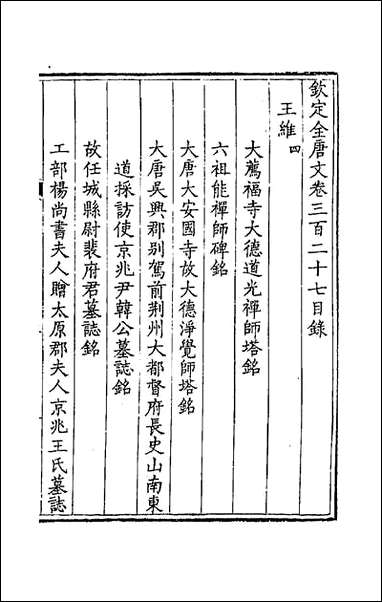 欽定全唐文卷三百二十七目錄
王維四
大薦福寺大德道光禪師塔銘
六祖能禪師碑銘
大唐大安國寺故大德淨覺師塔銘
大唐吳興郡別駕前荆州大都督府長史山南東
道採訪使京兆尹韓公墓誌銘
故任城縣尉裴府君墓誌銘
工部楊尚書夫人贈太原郡夫人京兆王氏墓誌